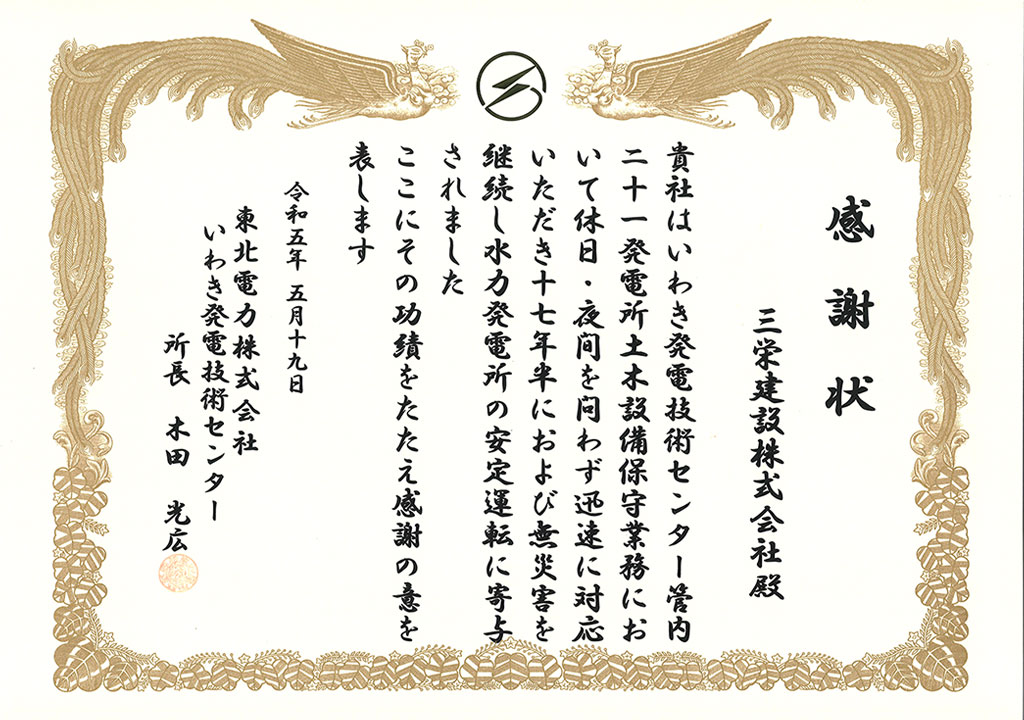 感謝状
三栄建設株式会社殿
貴社はいわき発電技術センター管内
二十一発電所土木設備保守業務にお
いて休日・夜間を問わず迅速に対応
いただき十七年半におよび無災害を
継続し水力発電所の安定運転に寄与
されました
ここにその功績をたたえ感謝の意を
表します
令和五年 五月十九日
東北電力株式会社
いわき発電技術センター
所長 木田 光広